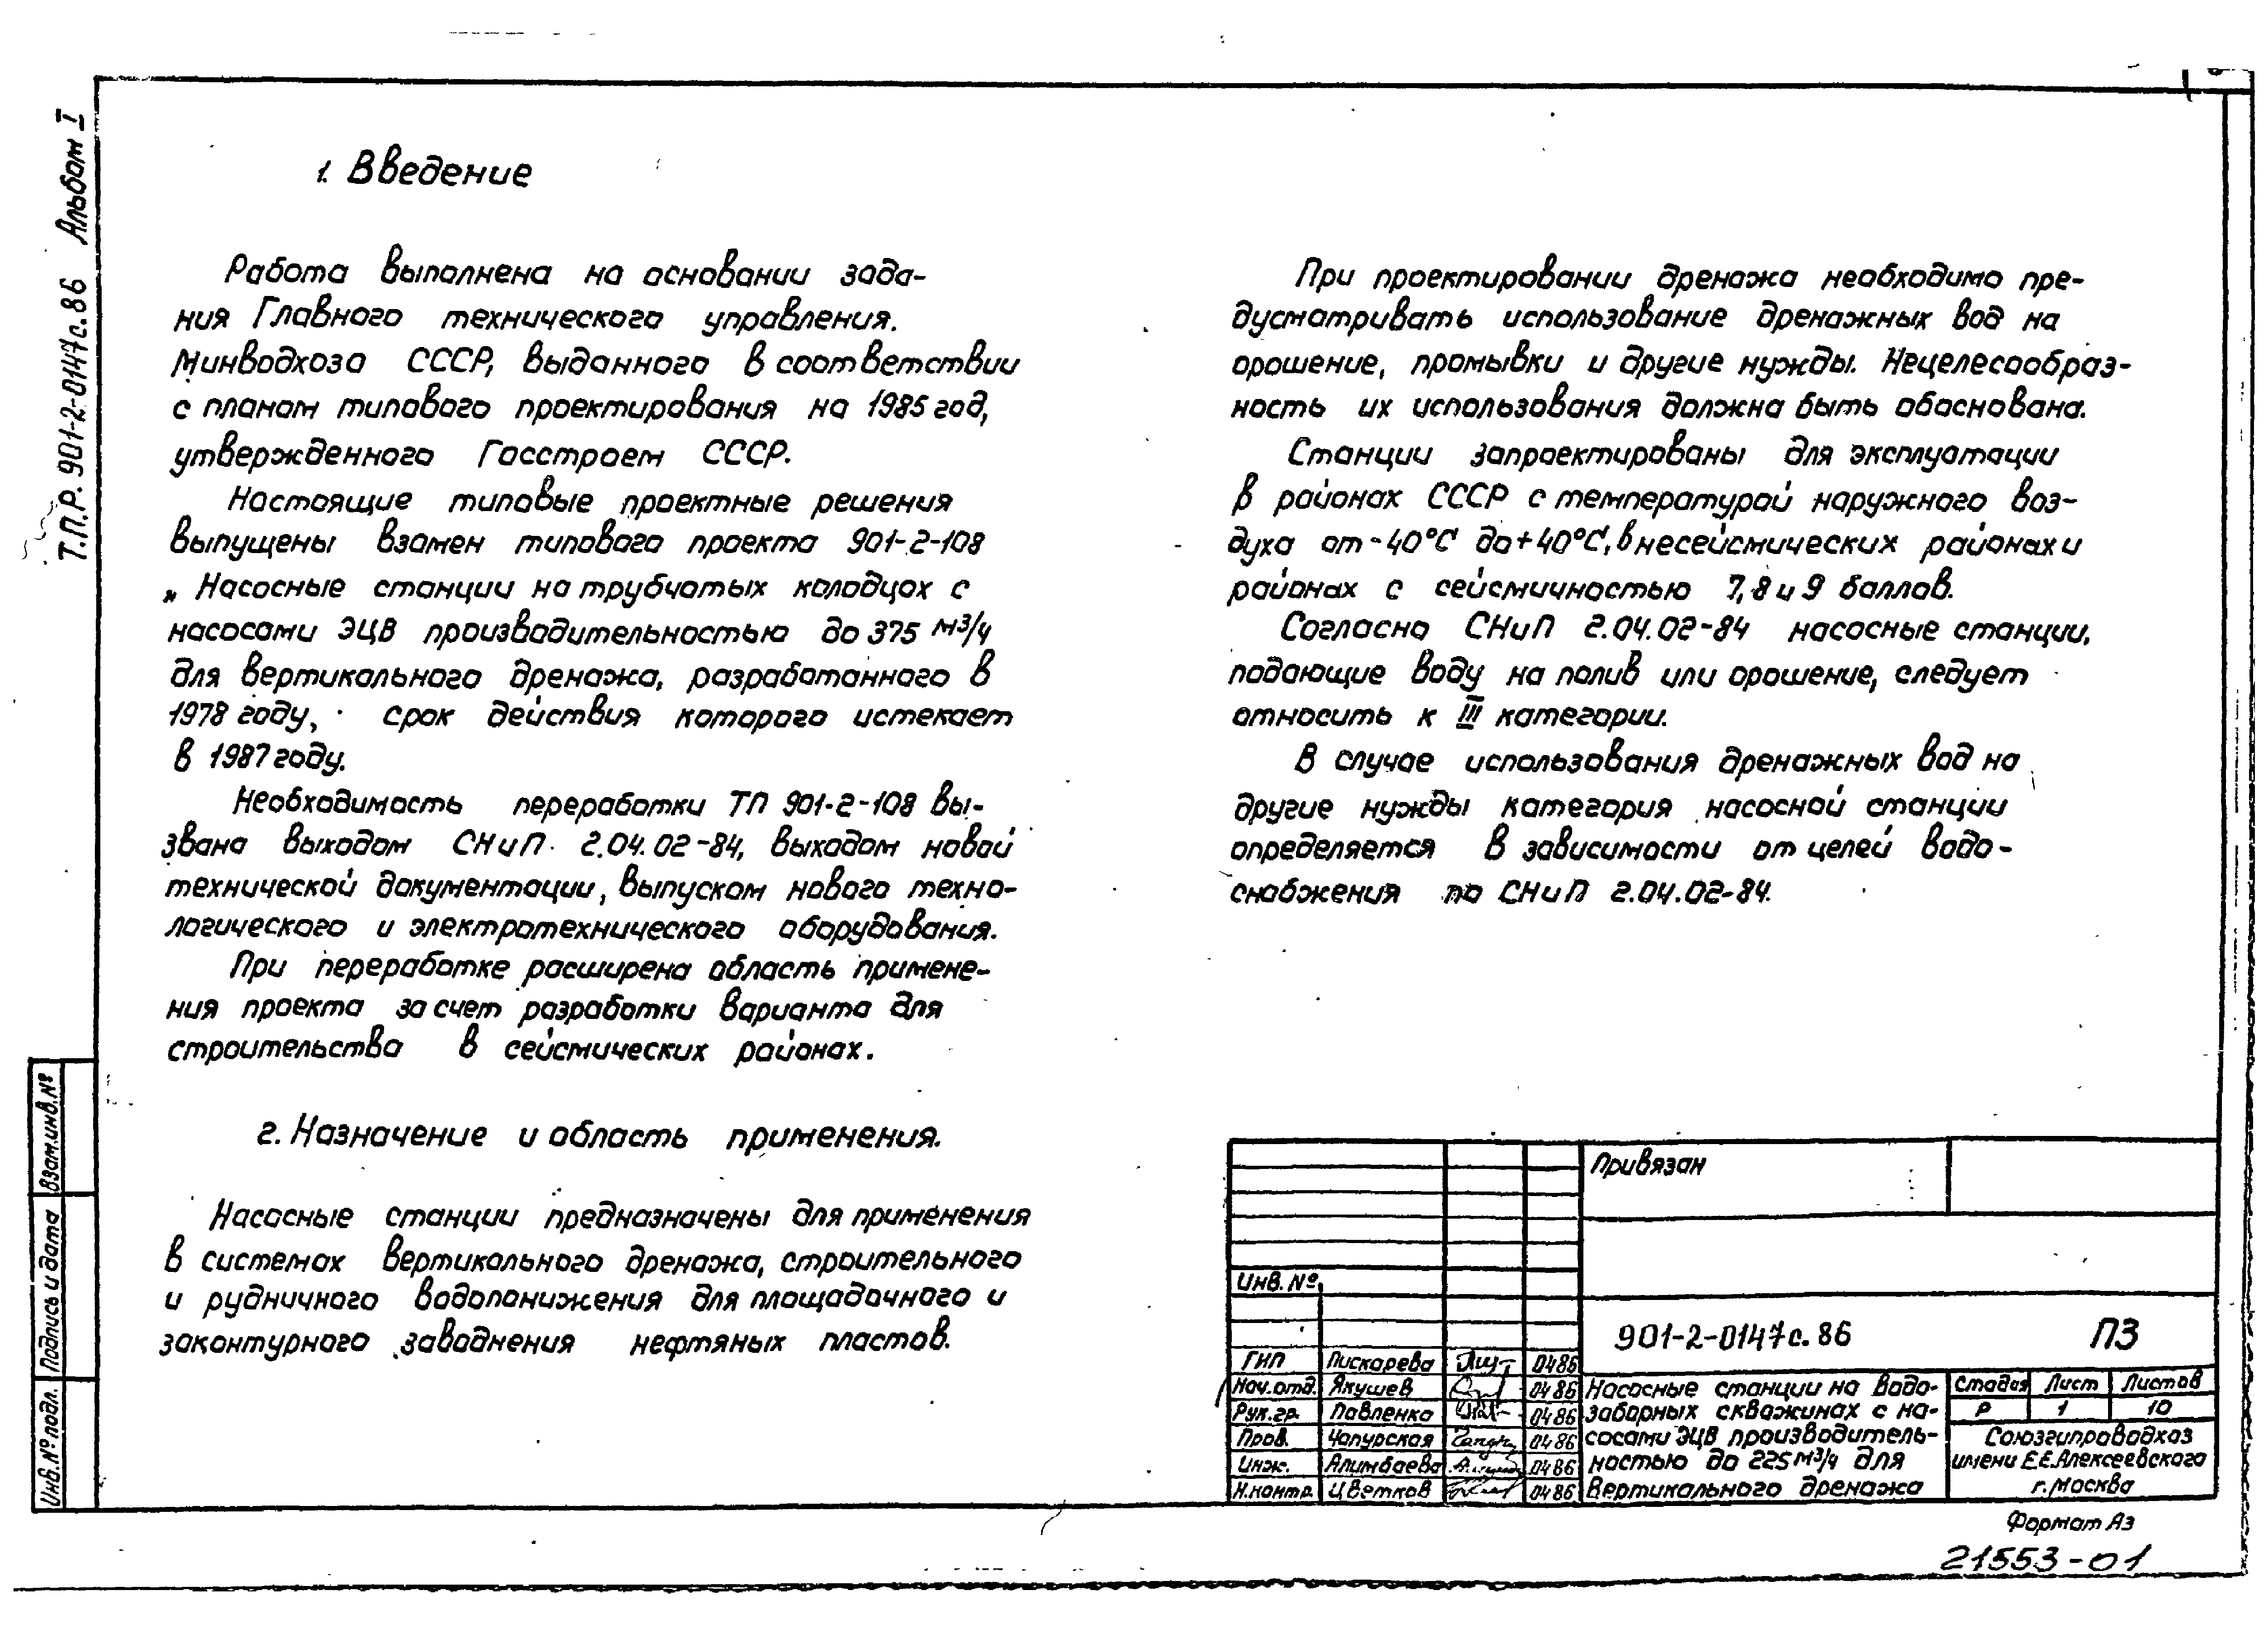 Т.П.Р. 901-2-0147с.86 Альбом I
1. Введение
Работа выполнена на основании зада-
ния Главного технического управления.
Минводхоза СССР, выданного в соответствии
с планом типового проектирования на 1985 год,
утвержденного Госстроем СССР.
Настоящие типовые проектные решения
выпущены взамен типового проекта 901-2-108
„Насосные станции на трубчатых колодцах с
насосами ЭЦВ производительностью до 375 м³/ч
для вертикального дренажа, разработанного в
1978 году, срок действия которого истекает
в 1987 году.
Необходимость переработки ТП 901-2-108 вы-
звана выходом СНиП 2.04.02-84, выходом новой
технической документации, выпуском нового техно-
логического и электротехнического оборудования.
При переработке расширена область примене-
ния проекта за счет разработки варианта для
строительства в сейсмических районах.
2. Назначение и область применения.
Насосные станции предназначены для применения
в системах вертикального дренажа, строительного
и рудничного водопонижения для площадочного и
законтурного заводнения нефтяных пластов.
При проектировании дренажа необходимо пре-
дусматривать использование дренажных вод на
орошение, промывки и другие нужды. Нецелесообраз-
ность их использования должна быть обоснована.
Станции запроектированы для эксплуатации
в районах СССР с температурой наружного воз-
духа от -40°С до +40°С, в несейсмических районах и
районах с сейсмичностью 7, 8 и 9 баллов.
Согласно СНиП 2.04.02-84 насосные станции,
подающие воду на полив или орошение, следует
относить к III категории.
В случае использования дренажных вод на
другие нужды категория насосной станции
определяется в зависимости от целей водо-
снабжения по СНиП 2.04.02-84.
Взам.инв.№
Подпись и дата
Инв.№ подл.
Привязан
Инв.№
901-2-0147с.86 ПЗ
ГИП Пискарева 0486
Нач.отд. Якушев 0486
Рук.гр. Павленко 0486
Пров. Чапурская 0486
Инж. Алимбаева 0486
Н.контр. Цветков 0486
Насосные станции на водо-
заборных скважинах с на-
сосами ЭЦВ производитель-
ностью до 225 м³/ч для
вертикального дренажа
Стадия Лист Листов
Р 1 10
Союзгипроводхоз
имени Е.Е.Алексеевского
г.Москва
Формат А3
21553-01